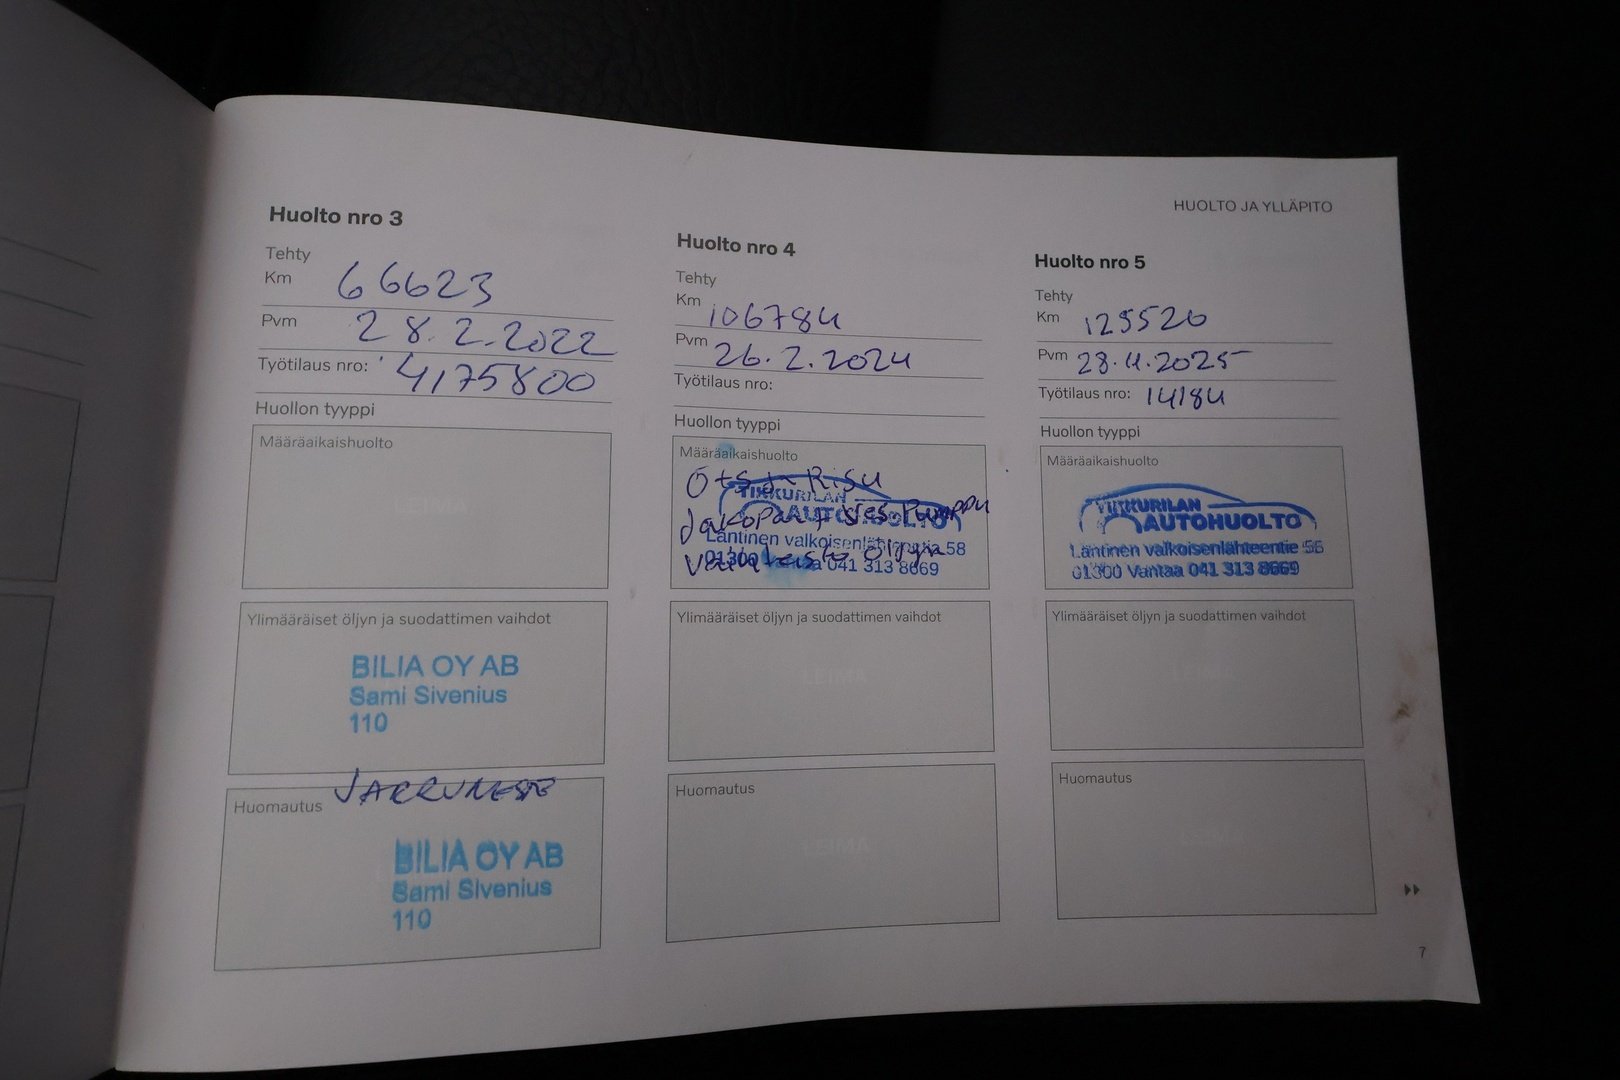 HUOLTO JA YLLÄPITO
Huolto nro 3
Tehty
Km 66623
Pvm 28.2.2022
Työtilaus nro: 4175800
Huollon tyyppi
Määräaikaishuolto
LEIMA
Ylimääräiset öljyn ja suodattimen vaihdot
BILIA OY AB
Sami Sivenius
110
Huomautus JARRUNESTE
BILIA OY AB
Sami Sivenius
110
Huolto nro 4
Tehty
Km 106784
Pvm 26.2.2024
Työtilaus nro:
Huollon tyyppi
Määräaikaishuolto
Öts ja Risu
TIKKURILAN
Jakopää + Ves Pumppu
AUTOHUOLTO
Läntinen valkoisenlähteentie 58
01300 Vantaa 041 313 8669
Ylimääräiset öljyn ja suodattimen vaihdot
LEIMA
Huomautus
LEIMA
Huolto nro 5
Tehty
Km 125520
Pvm 28.4.2025
Työtilaus nro: 14184
Huollon tyyppi
Määräaikaishuolto
TIKKURILAN
AUTOHUOLTO
Läntinen valkoisenlähteentie 58
01300 Vantaa 041 313 8669
Ylimääräiset öljyn ja suodattimen vaihdot
LEIMA
Huomautus
LEIMA
7